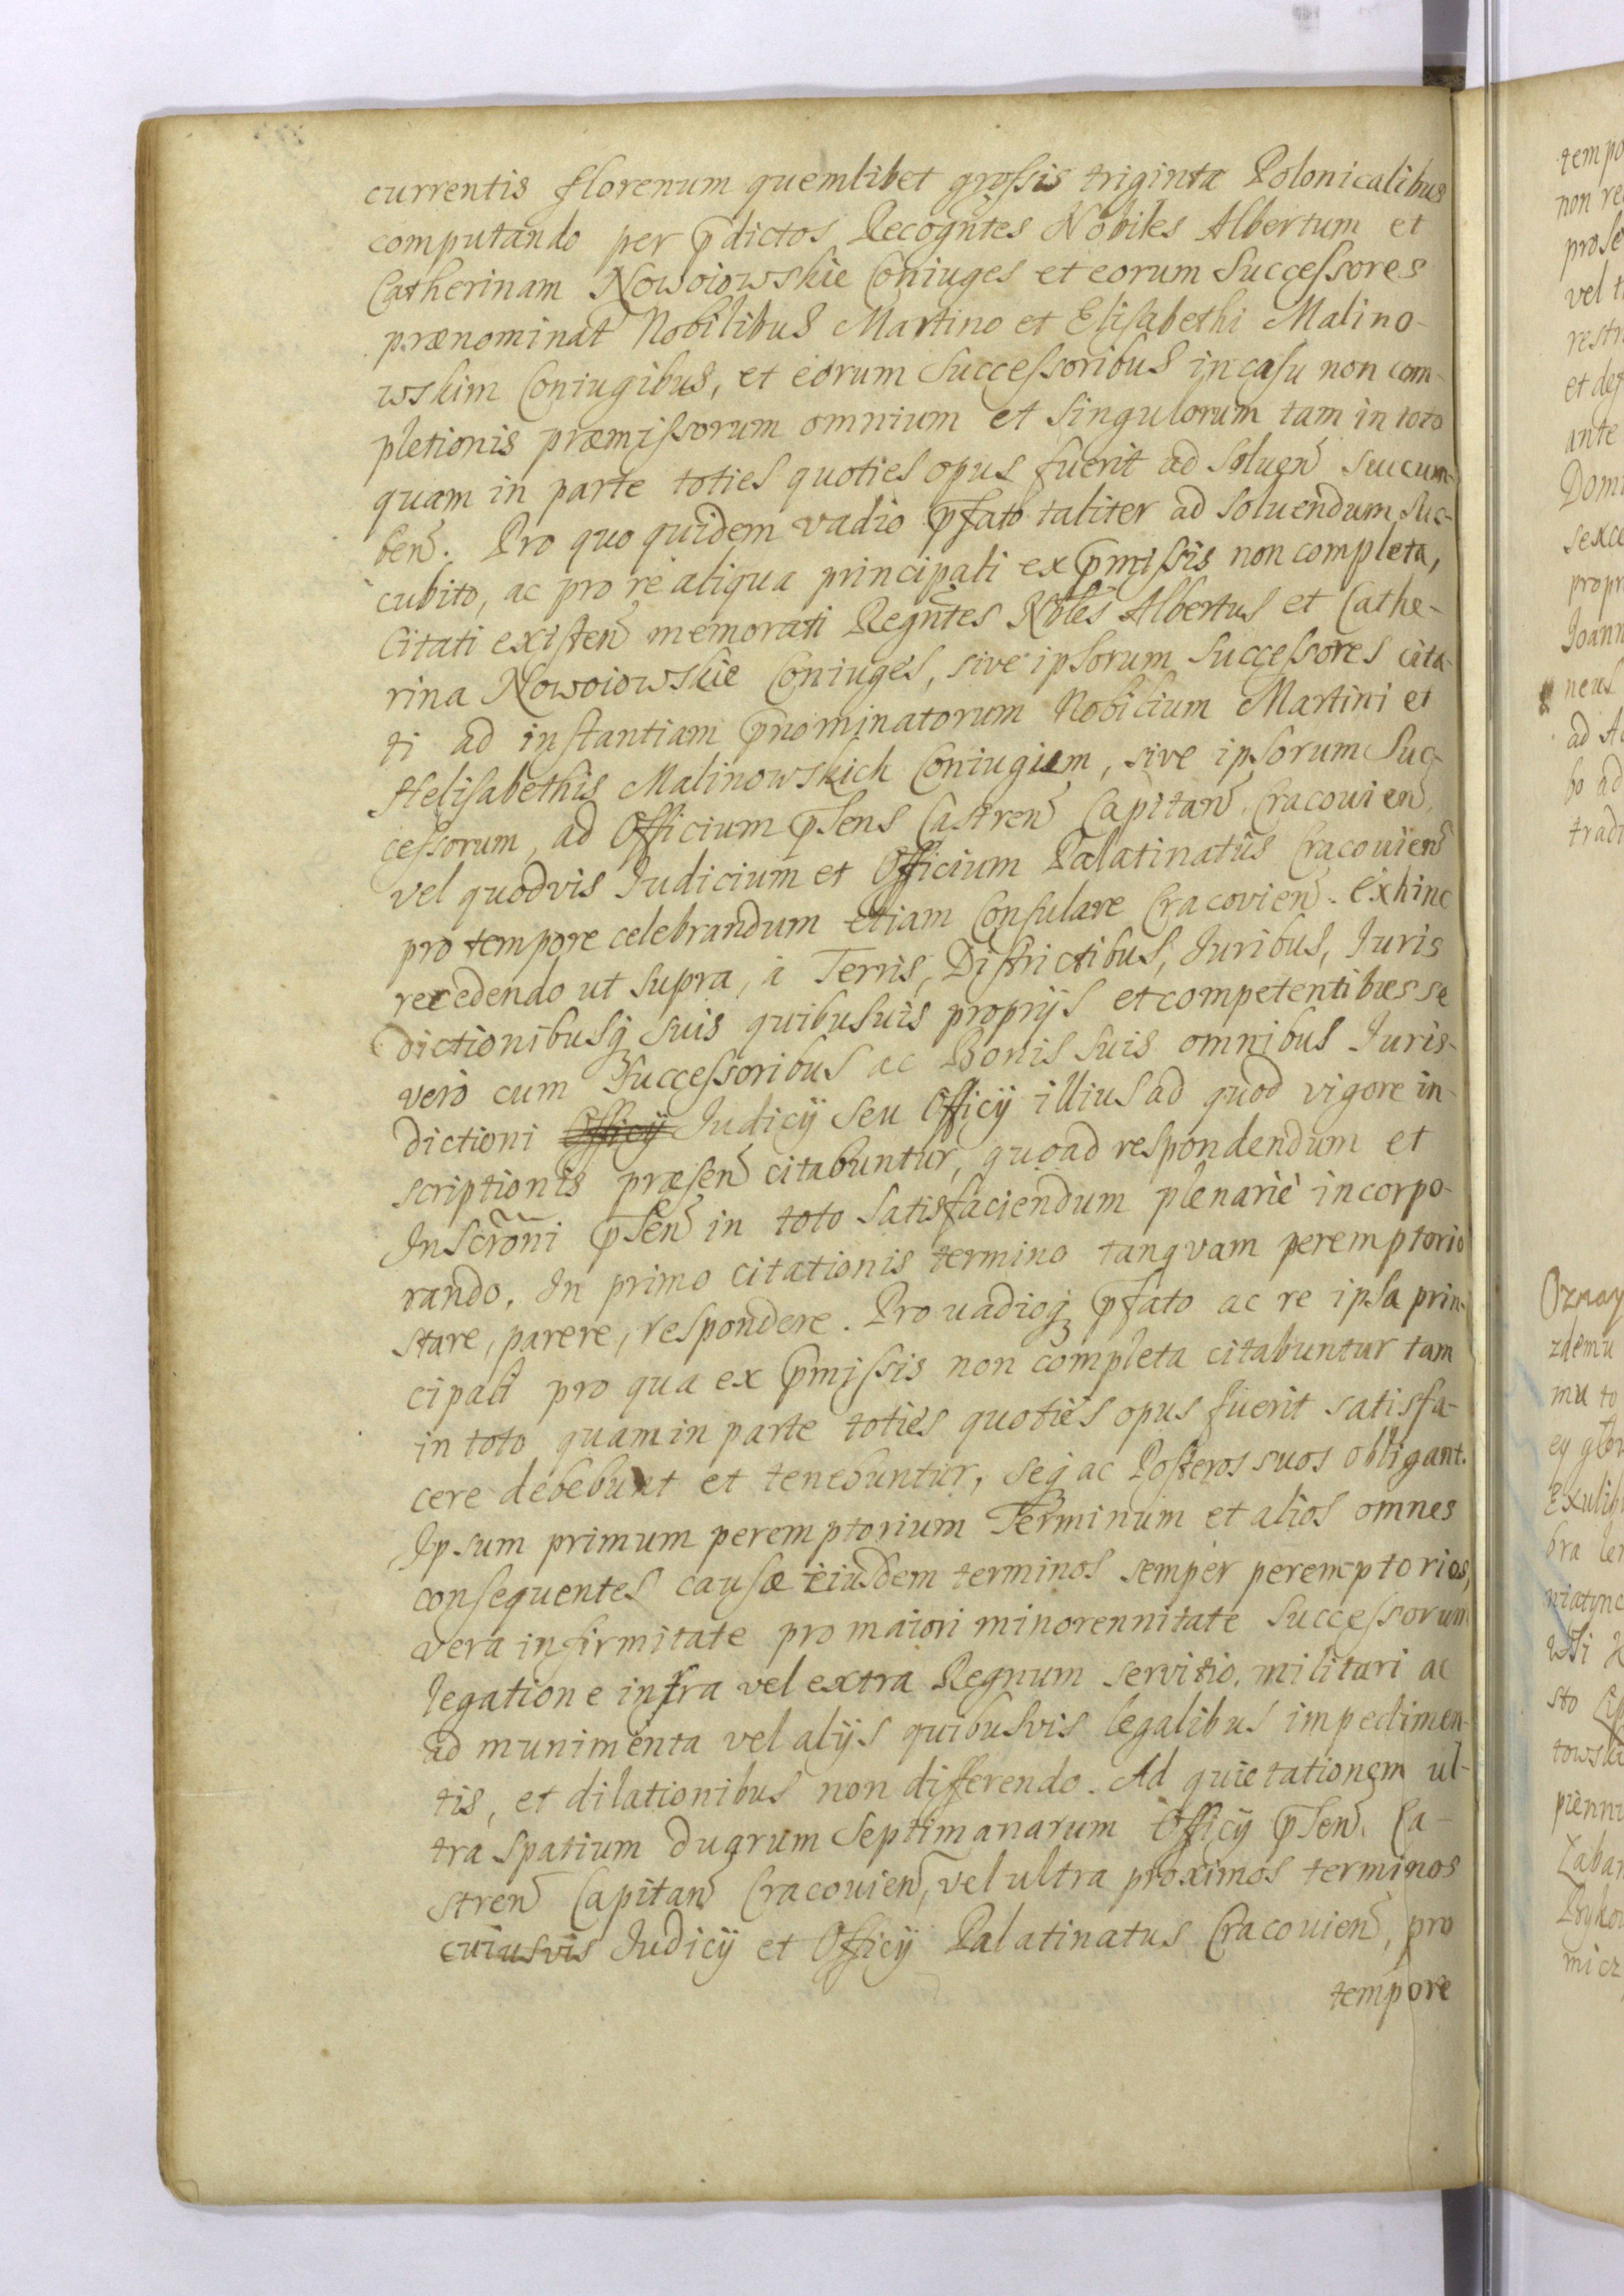 currentis florenum quemlibet grossis triginta Polonicalibus
computando per p̄dictos Recogn̄tes Nobiles Albertum et
Catherinam Nowoiowskie Coniuges et eorum Successores
prænominat̄ Nobilibus Martino et Elisabethi Malino-
wskim Coniugibus, et eorum Successoribus in casu non com-
pletionis præmissorum omnium et singulorum tam in toto
quam in parte toties quoties opus fuerit ad soluen̄ succum-
ben̄. Pro quo quidem vadio p̄fato taliter ad soluendum suc-
cubito, ac pro re aliqua principali ex p̄missis non completa,
Citati existen̄ memorati Regn̄tes Nob̄les Albertus et Cathe-
rina Nowoiowskie Coniuges, sive ipsorum Successores cita-
ti ad instantiam p̄nominatorum Nobilium Martini et
Helisabethis Malinowskich Coniugium, sive ipsorum Suc-
cessorum, ad Officium p̄sens Castren̄ Capitan̄ Cracouien̄
vel quodvis Iudicium et Officium Palatinatus Cracouien̄
pro tempore celebrandum etiam Consulare Cracovien̄. Exhinc
recedendo ut supra, à Terris, Districtibus, Iuribus, Iuris
dictionibusq̨ suis quibusuis proprijs et competentibus se
vero cum Successoribus ac Bonis suis omnibus Iuris-
dictioni Officij Iudicij seu Officij illius ad quod vigore in-
scriptionis præsen̄ citabuntur, quoad respondendum et
Inscr̄oni p̄sen̄ in toto satisfaciendum plenariè incorpo-
rando. In primo citationis termino tanquam peremptorio
stare, parere, respondere. Pro uadioq̨ p̄fato ac re ipsa prin-
cipali pro qua ex p̄missis non completa citabuntur tam
in toto quam in parte toties quoties opus fuerit satisfa-
cere debebunt et tenebuntur, seq̨ ac Posteros suos obligant.
Ipsum primum peremptorium Terminum et alios omnes
consequentes causæ eiusdem terminos semper peremptorios,
vera infirmitate pro maiori minorennitate Successorum
legatione infra vel extra Regnum servitio militari ac
ad munimenta vel alijs quibusvis legalibus impedimen-
tis, et dilationibus non differendo. Ad quietationem ul-
tra spatium duarum Septimanarum Officij p̄sen̄. Ca-
stren̄ Capitan̄ Cracouien̄, vel ultra proximos terminos
cuiusvis Iudicij et Officij Palatinatus Cracouien̄, pro
tempore